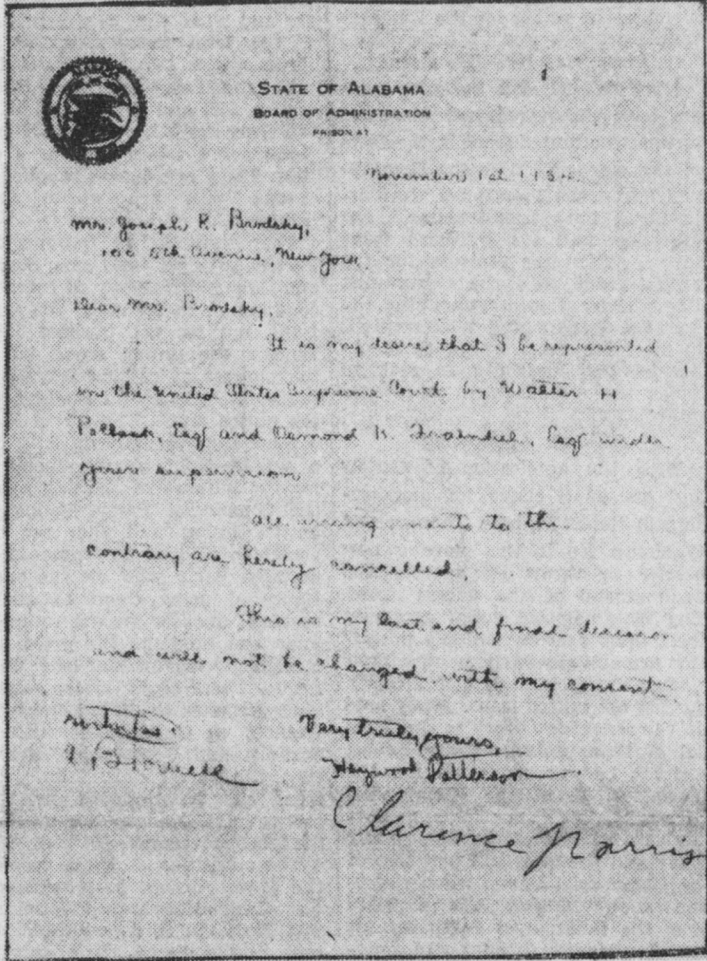 STATE OF ALABAMA
BOARD OF ADMINISTRATION
PRISON AT
November 1st 193
Mr. Joseph R. Brodsky,
5th Avenue, New York.
Dear Mr. Brodsky.
It is my desire that I be represented
in the United States Supreme Court by Walter H
Pollack, Esq and Osmond K. Fraenkel, Esq under
your supervision
All to the
contrary are hereby cancelled.
This is my last and final decision
and will not be changed with my consent
Very truly yours,
Haywood Patterson
Clarence Norris